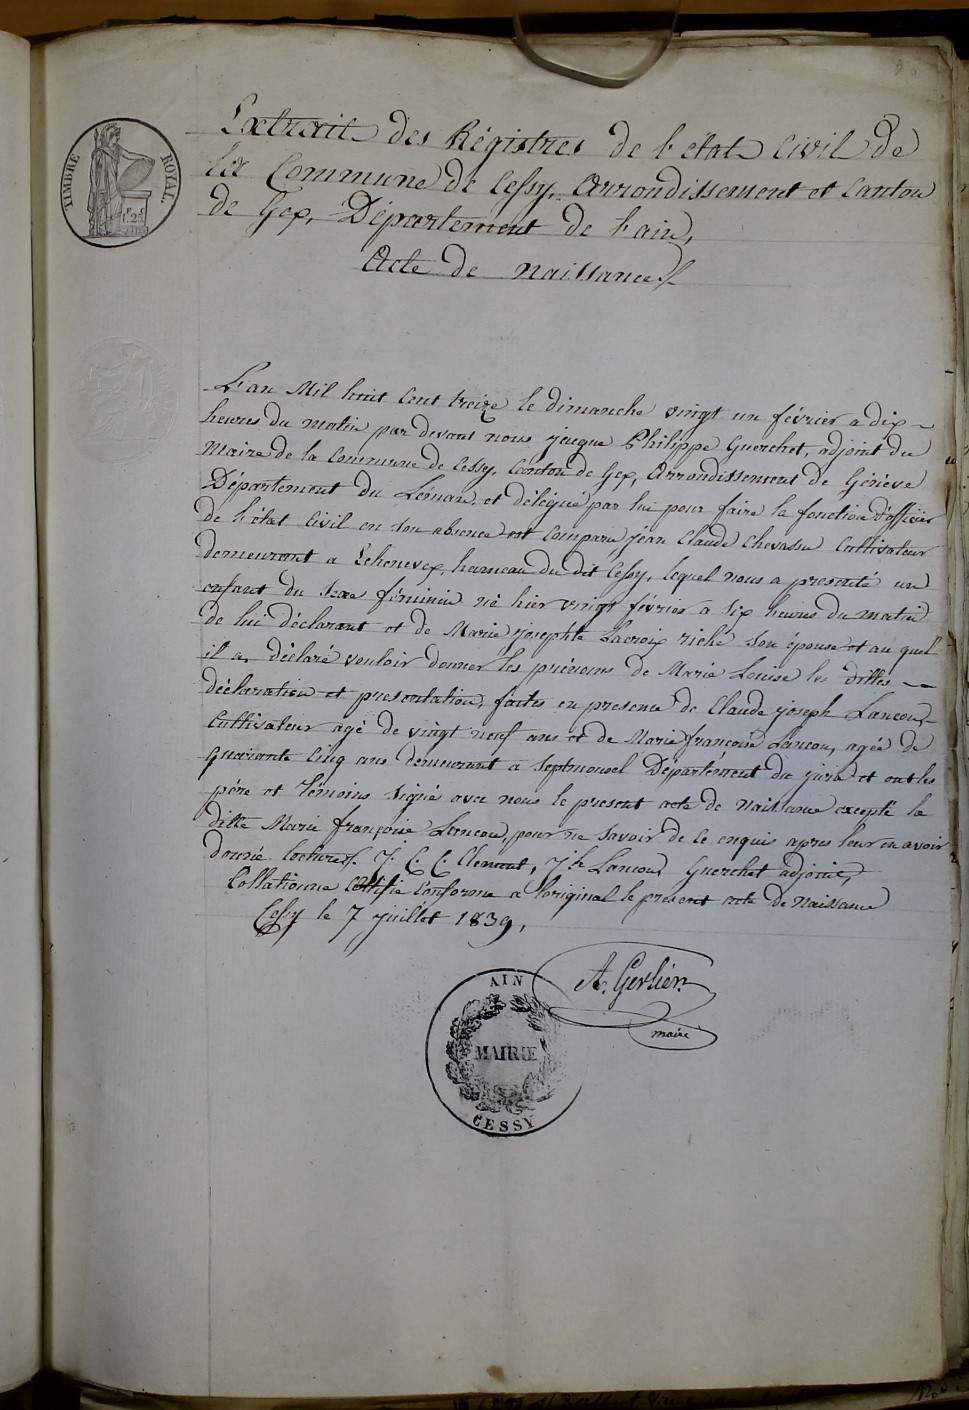 TIMBRE ROYAL.
1f.25c
Extrait des Régistres de l'état Civil de
la Commune de Cessy, Arrondissement et Canton
de Gex, Département de l'ain,
Acte de naissance
L'an Mil huit Cent treize le dimanche vingt un février a dix
heures du matin par devant nous jacque Philippe Guerchet, adjoint du
Maire de la Commune de Cessy, Canton de Gex, Arrondissement de Génève
Département du Léman, et délégué par lui pour faire la fonction d'officier
de l'état Civil en son absence est Comparu jean Claude Chevassu Cultivateur
demeurant a hameau du dit Cessy, lequel nous a presenté un
enfant du sexe féminin né hier vingt février a six heures du matin
de lui déclarant et de Marie josephte Lacroix riché son épouse et au quel
il a déclaré vouloir donner les prénoms de Marie Louise les dittes
déclaration et presentation, faites en presence de Claude joseph Lancon
Cultivateur agé de vingt neuf ans et de Marie françoise Lancon, agée de
quarante Cinq ans demeurant a Septmoncel Département du jura et ont les
père et témoins signé avec nous le present acte de naissance excepté la
ditte Marie françoise Lancon, pour ne savoir de ce enquis apres leur en avoir
donné lecture J. C. C. Clement, Jh Lancon Guerchet adjoint,
Collationne Certifié Conforme a l'original le present acte de Naissance
Cessy le 7 juillet 1839,
A. Gerlier
maire
AIN
MAIRIE
CESSY